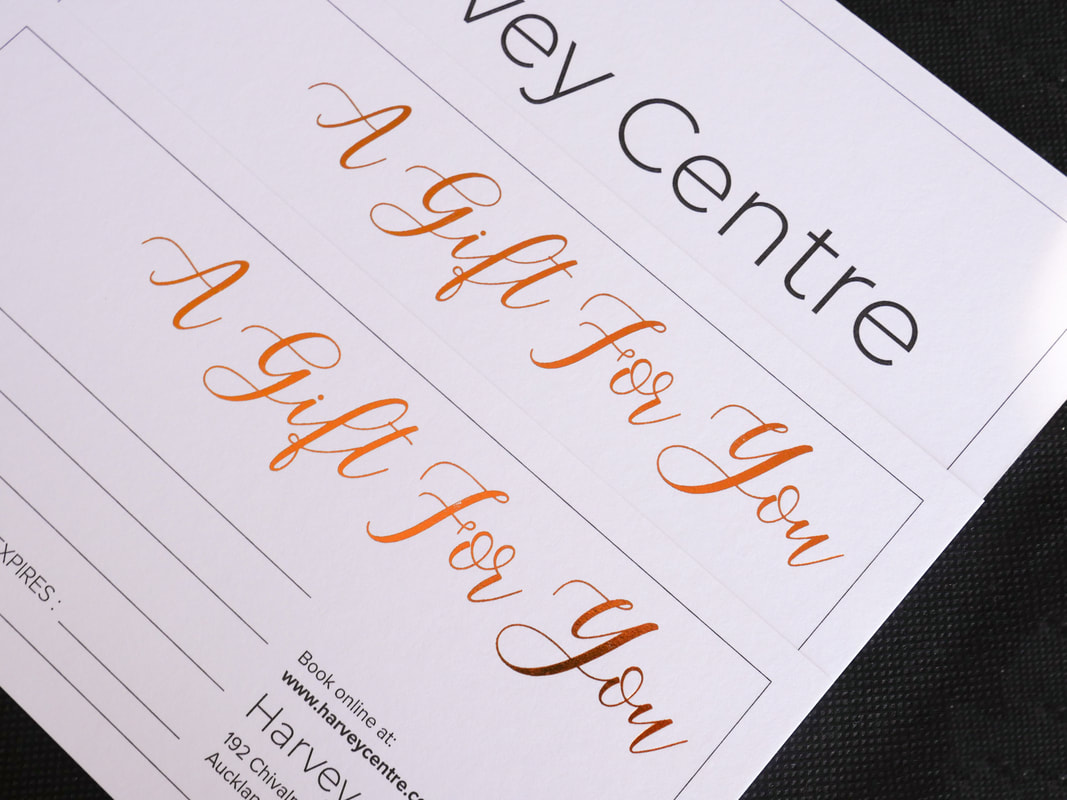 vey Centre
A Gift For You
A Gift For You
EXPIRES :
Book online at:
www.harveycentre.co
Harvey
192 Chival
Aucklan